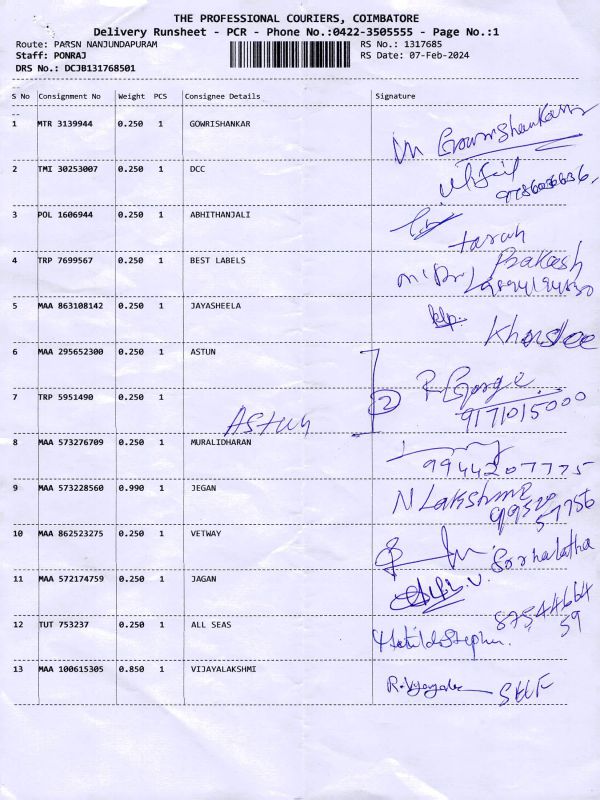 THE PROFESSIONAL COURIERS, COIMBATORE
Delivery Runsheet - PCR - Phone No.:0422-3505555 - Page No.:1
Route: PARSN NANJUNDAPURAM
RS No.: 1317685
Staff: PONRAJ
RS Date: 07-Feb-2024
DRS No.: DCJB131768501
S No Consignment No Weight PCS Consignee Details Signature
1 MTR 3139944 0.250 1 GOWRISHANKAR
M Gowrishankar
2 TMI 30253007 0.250 1 DCC
3 POL 1606944 0.250 1 ABHITHANJALI
tarah
4 TRP 7699567 0.250 1 BEST LABELS
Prakash
5 MAA 863108142 0.250 1 JAYASHEELA
6 MAA 295652300 0.250 1 ASTUN
2 R George
7 TRP 5951490 0.250 1
Astun 9171015000
8 MAA 573276709 0.250 1 MURALIDHARAN
9944207775
9 MAA 573228560 0.990 1 JEGAN
N Lakshmi
10 MAA 862523275 0.250 1 VETWAY
11 MAA 572174759 0.250 1 JAGAN
12 TUT 753237 0.250 1 ALL SEAS
8754466459
13 MAA 100615305 0.850 1 VIJAYALAKSHMI
SELF